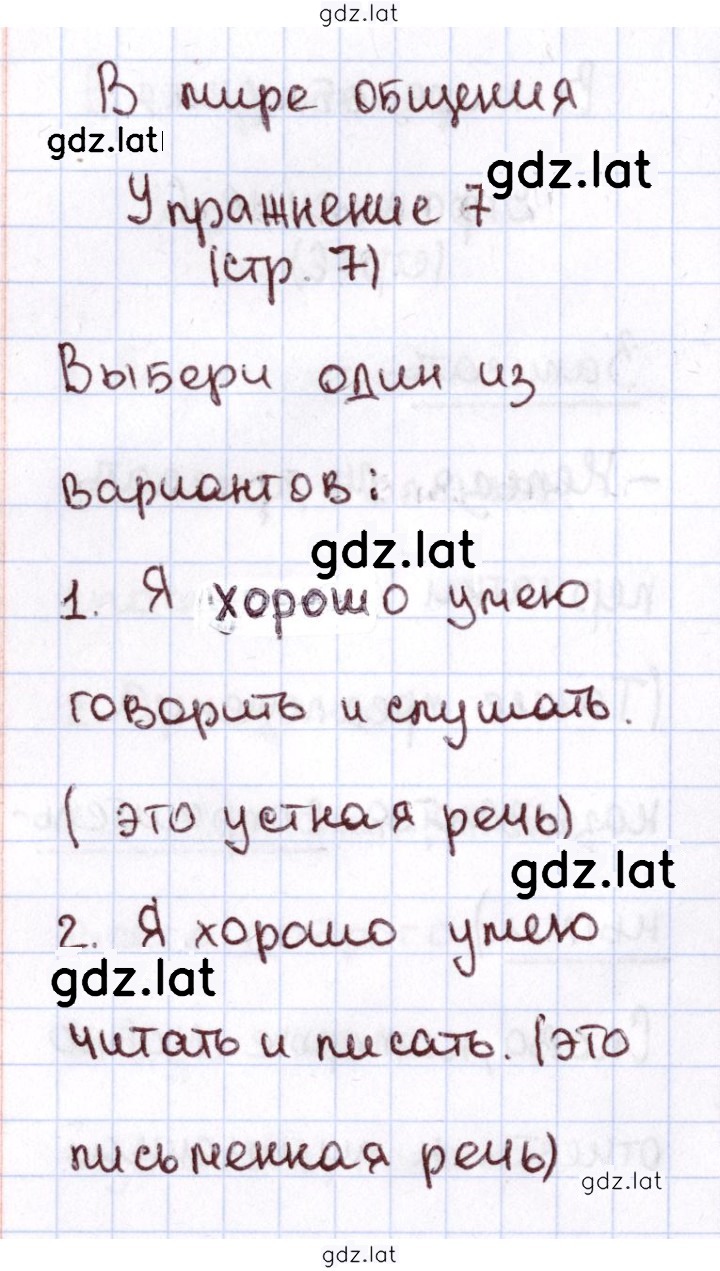 gdz.lat
В мире общения
gdz.lat
gdz.lat
Упражнение 7
(стр. 7)
Выбери один из
вариантов:
gdz.lat
1. Я хорошо умею
говорить и слушать.
( это устная речь)
gdz.lat
2. Я хорошо умею
gdz.lat
читать и писать. (это
письменная речь)
gdz.lat
gdz.lat